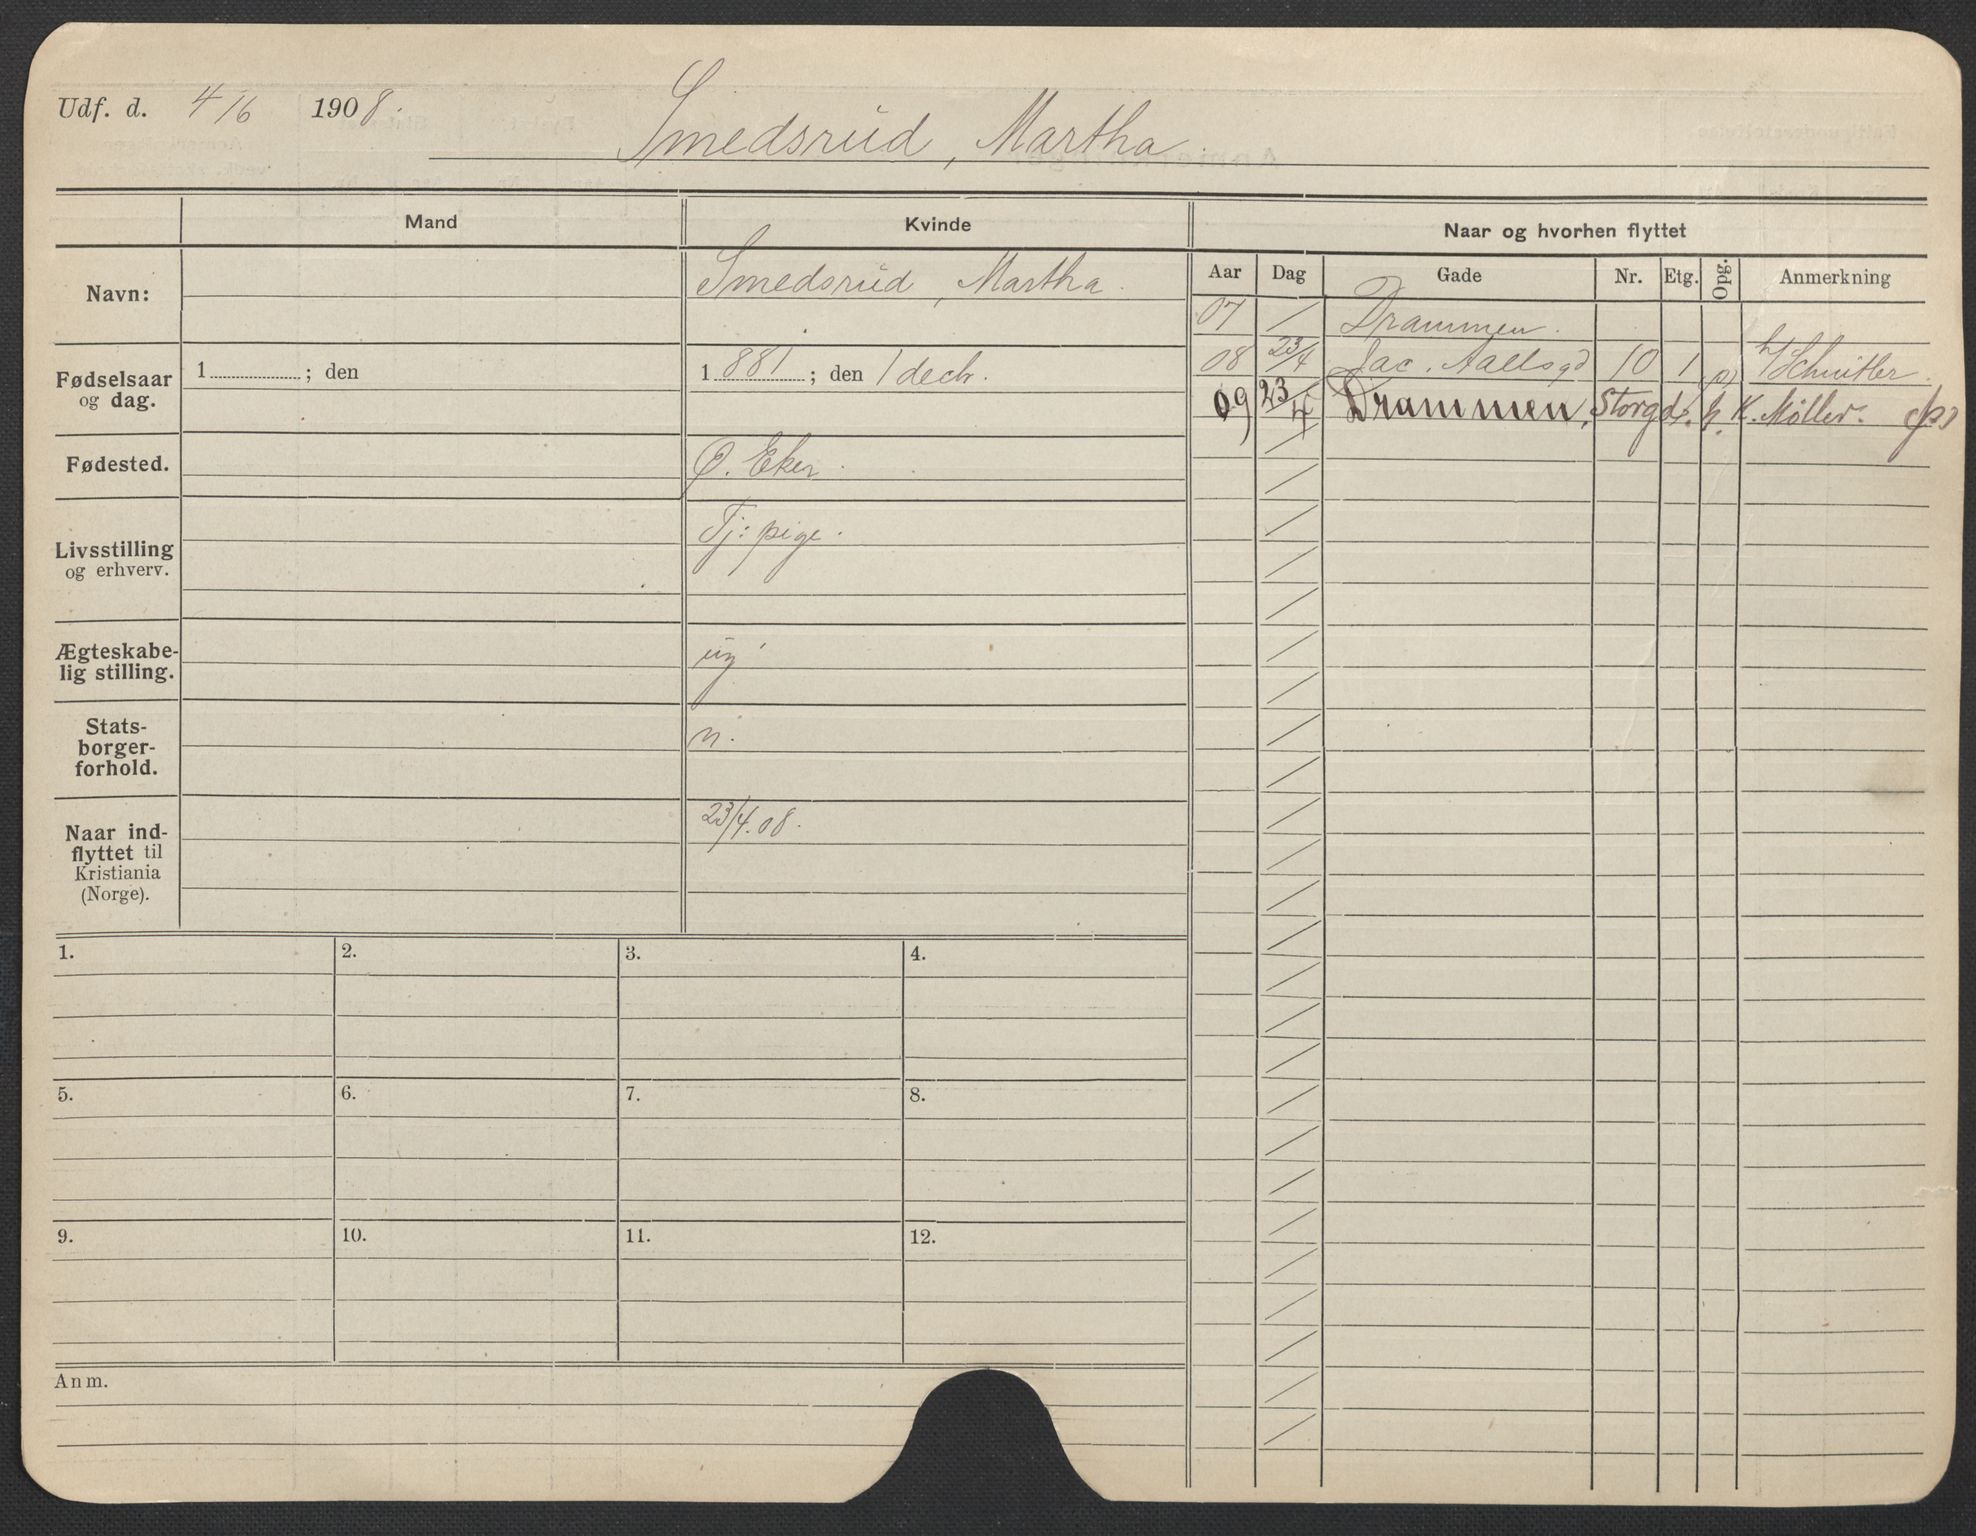 Udf. d. 4/6 1908.
Smedsrud, Martha.
Mand
Kvinde
Naar og hvorhen flyttet
Aar Dag Gade Nr. Etg. Opg. Anmerkning
Navn:
Smedsrud, Martha.
07 / Drammen.
08 23/4 Jac. Aallsgd 10 1 h/ Schnitler.
09 23/4 Drammen, Storgd. h. K. Møller.
Fødselsaar
og dag.
1 ; den
1881 ; den 1 decbr.
Fødested.
Ø. Eker.
Livsstilling
og erhverv.
Tj: pige.
Ægteskabe-
lig stilling.
ug
Stats-
borger-
forhold.
n.
Naar ind-
flyttet til
Kristiania
(Norge).
23/4.08.
1. 2. 3. 4.
5. 6. 7. 8.
9. 10. 11. 12.
Anm.